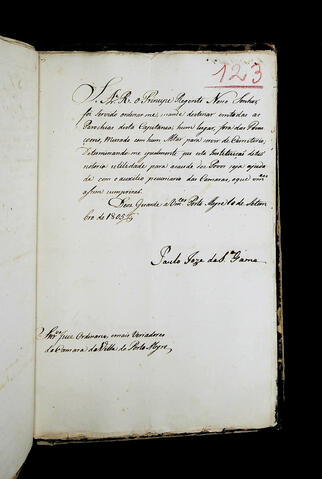 123
S. A. R. o Principe Regente Nosso Senhor
foi servido ordenar-me, mande destinar em todas as
Parochias desta Capitania, hum lugar, fora das Povoa
çoens, Murado com hum Altar para servir de Cemiterio,
Determinando-me igualmente que esta Instituiçaõ de taõ
notoria utilidade para a saude dos Povos seja ajuda
da com o auxilio pecuniario das Camaras, o que vm.ces
assim cumpriraõ.
Deos Guarde a Vm.ces Porto Alegre 1º de Setem
bro de 1805
Paulo Joze da S.a Gama
Snr.es Juiz Ordinario, e mais Vereadores
da Camara da Villa de Porto Alegre